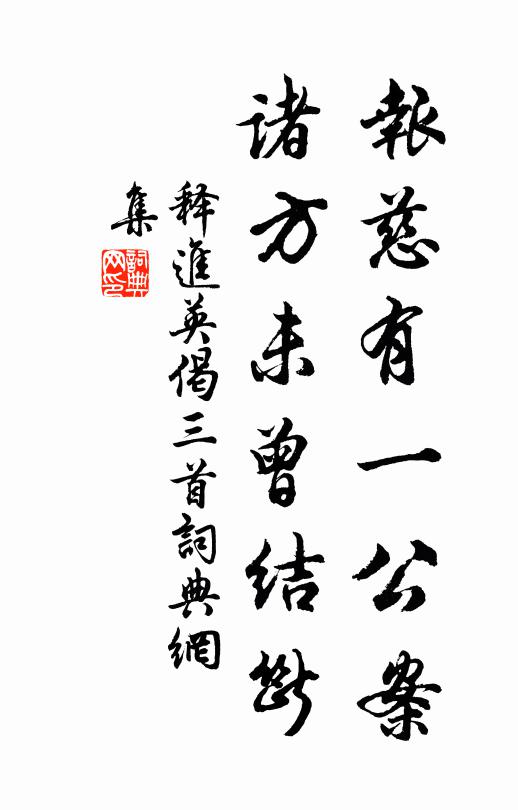 報慈有一公案
諸方未曾結斷
释進英偈三首詞典網
集
詞典網印